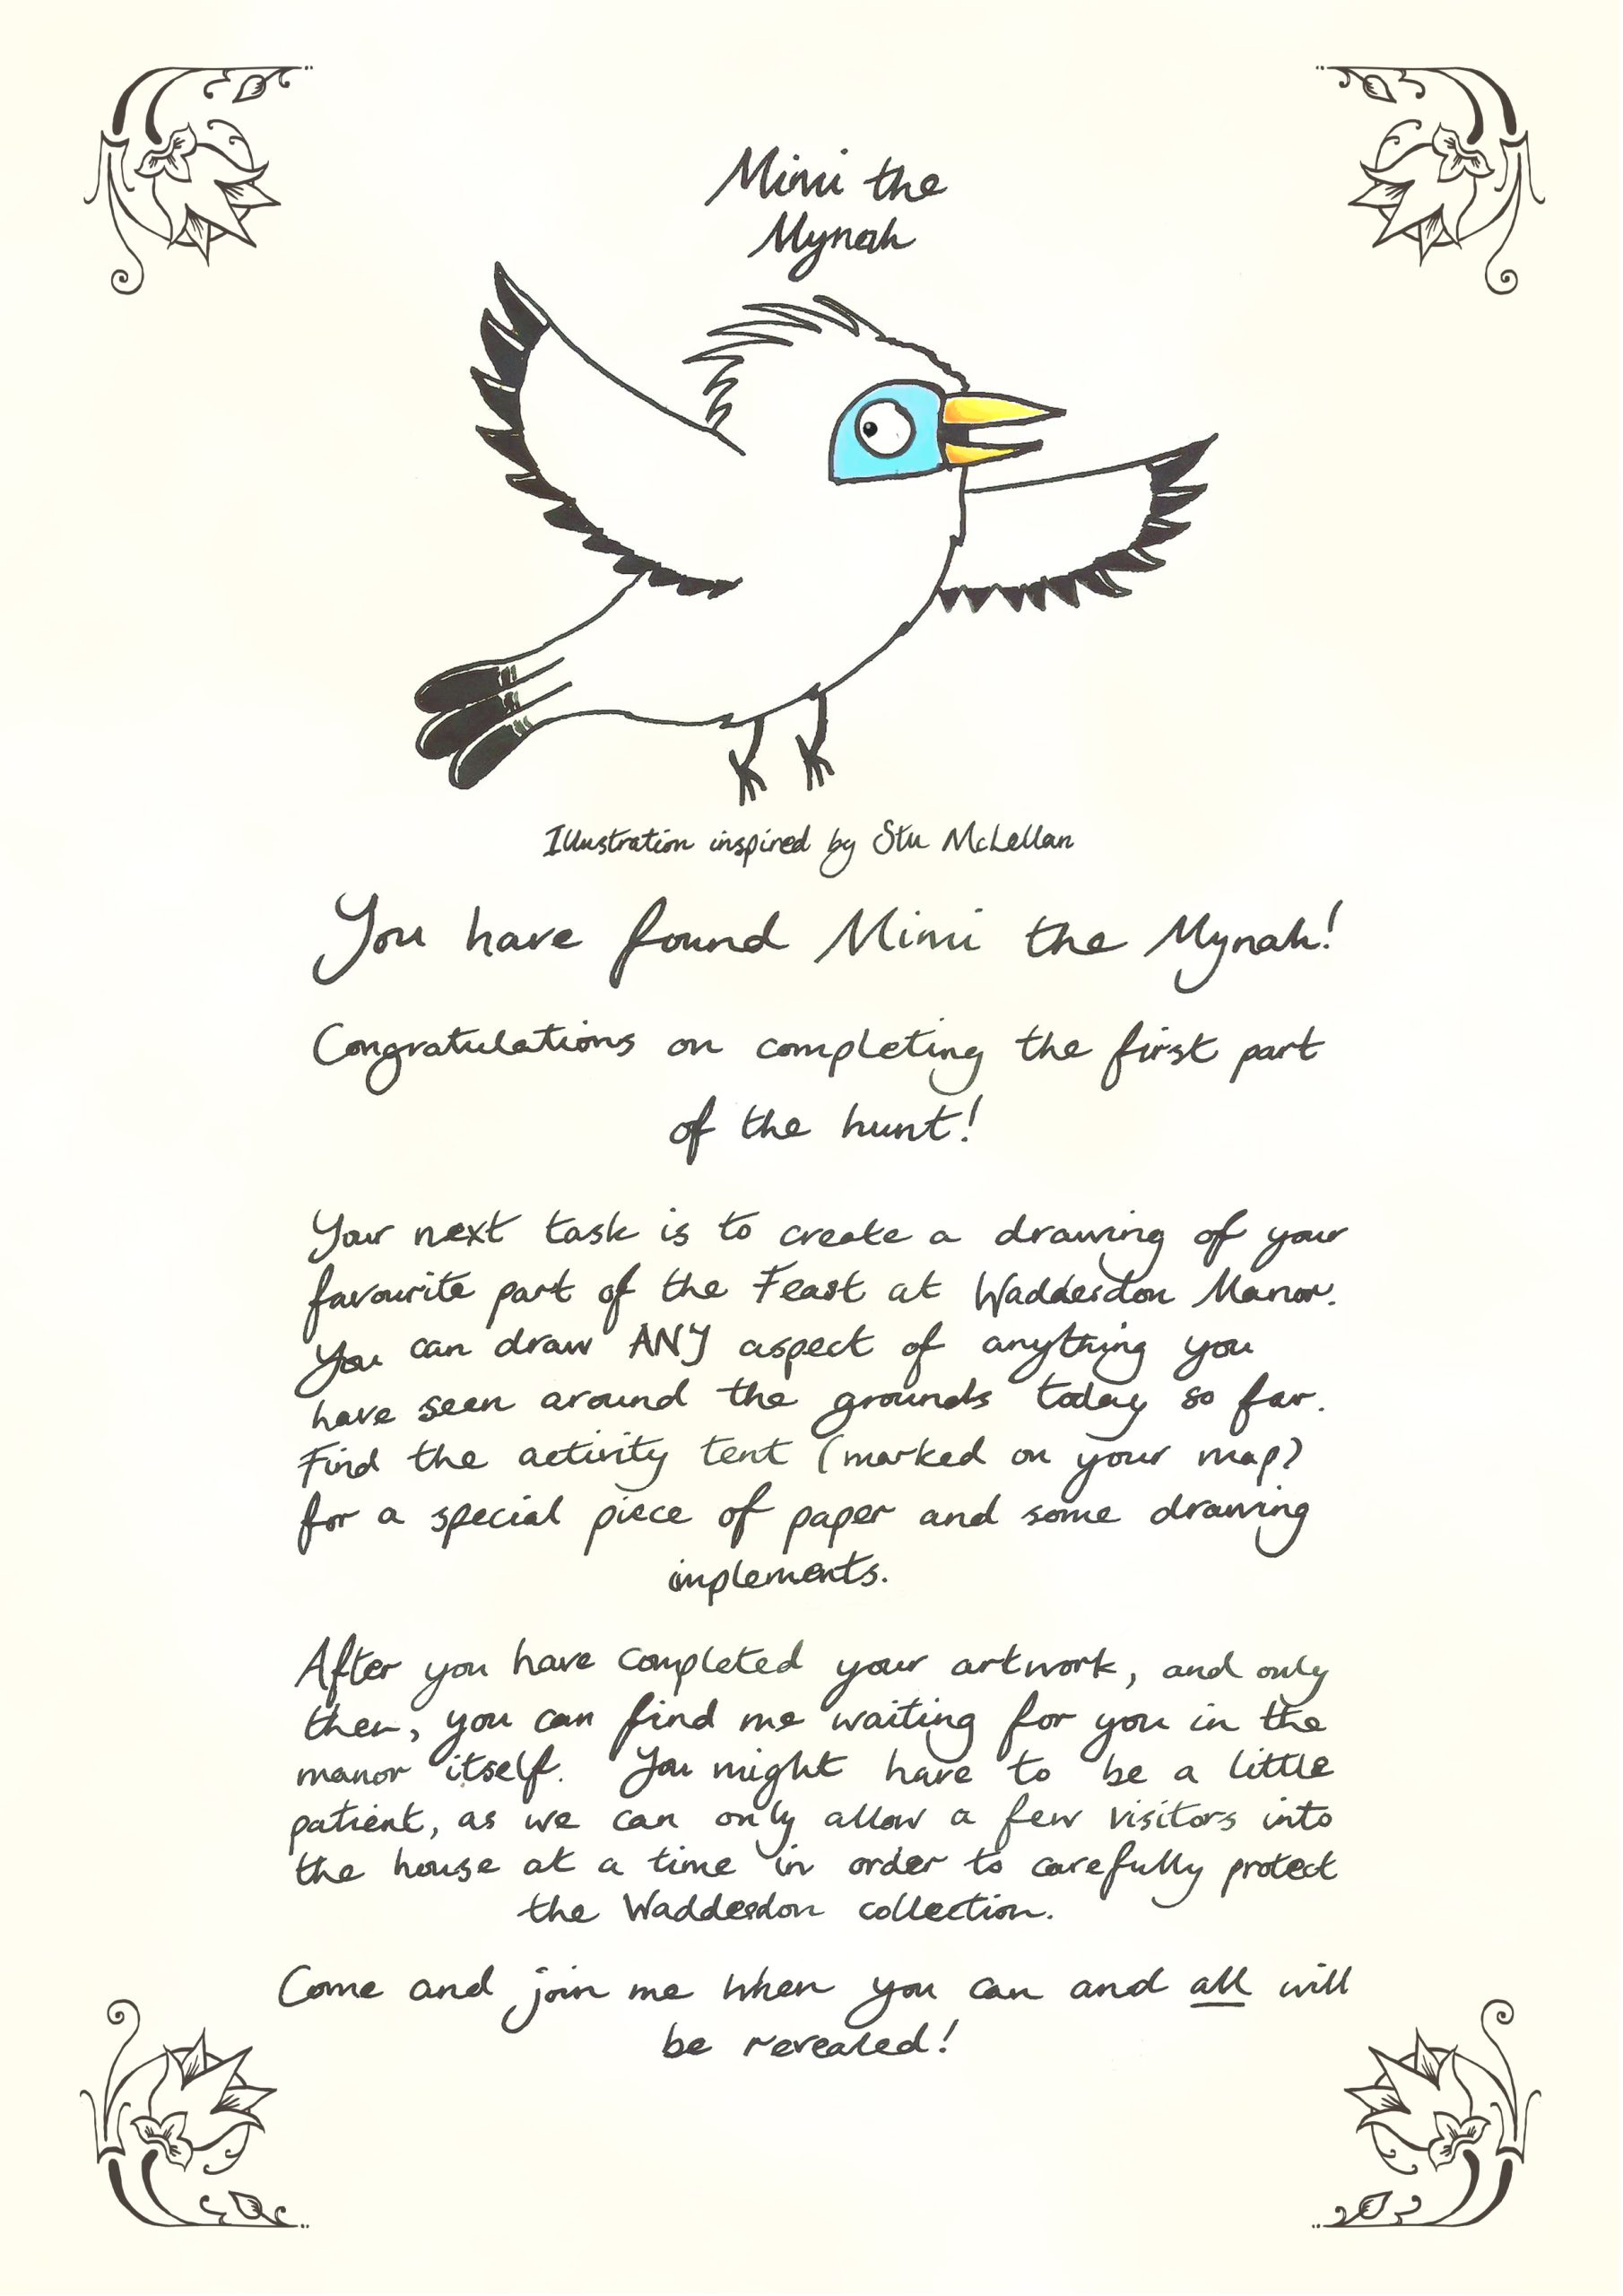 Mimi the
Mynah
Illustration inspired by Stu McLellan
You have found Mimi the Mynah!
Congratulations on completing the first part
of the hunt!
Your next task is to create a drawing of your
favourite part of the Feast at Waddesdon Manor.
You can draw ANY aspect of anything you
have seen around the grounds today so far.
Find the activity tent (marked on your map)
for a special piece of paper and some drawing
implements.
After you have completed your artwork, and only
then, you can find me waiting for you in the
manor itself. You might have to be a little
patient, as we can only allow a few visitors into
the house at a time in order to carefully protect
the Waddesdon collection.
Come and join me when you can and all will
be revealed!